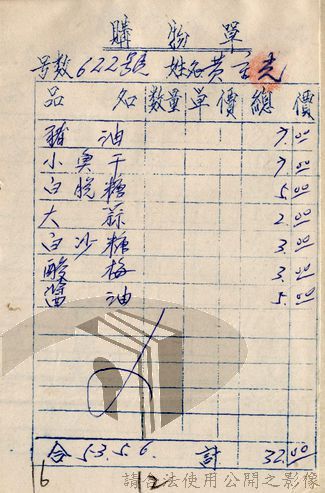 購物單
号数622號 姓名黃
品名 数量 單價 總價
豬油 7.00
小魚干 7.00
白脱糖 5.00
大蒜 2.00
白沙糖 3.00
酸梅 3.00
醬油 5.00
合 53.5.6. 計 32.00
6 2
請合法使用公開之影像